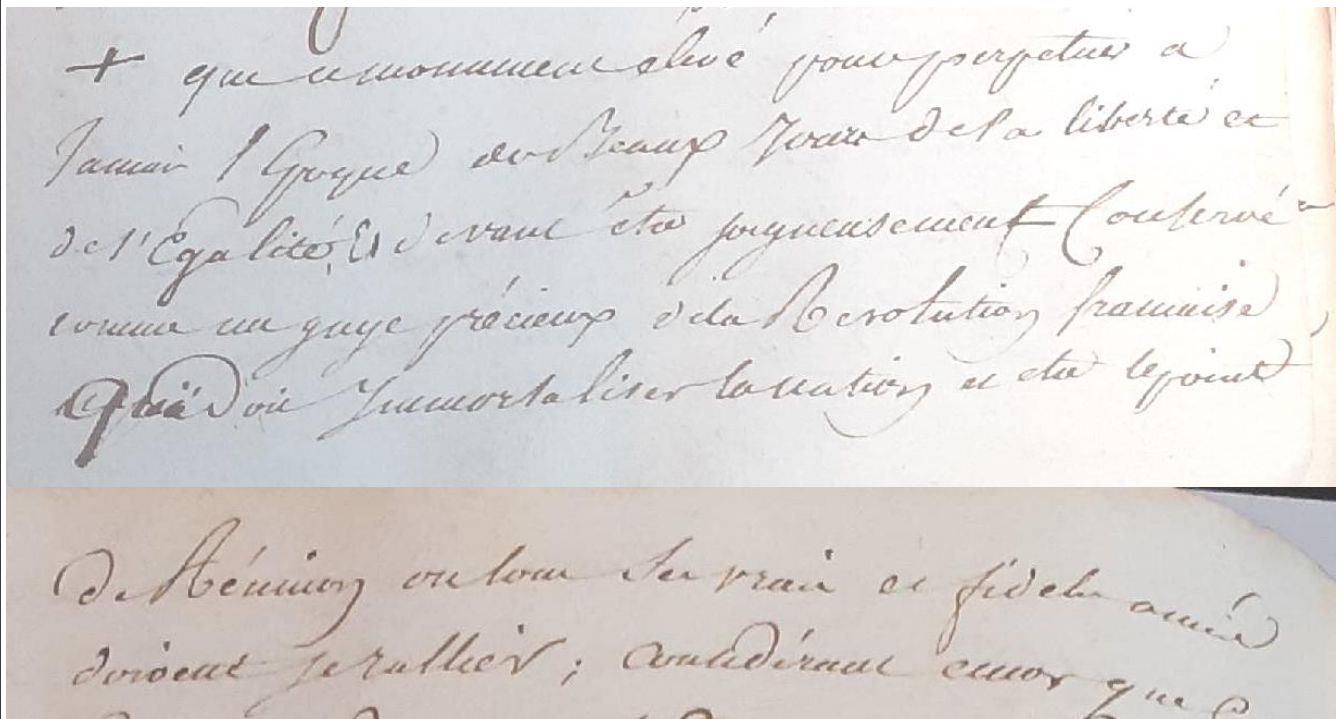 + que ce monument elevé pour perpetuer a
Jamais l'Epoque des Beaux Jours de la liberté et
de l'Egalité, devant etre soigneusement Conservé
comme un gage précieux de la Revolution francaise
Qui Doit Immortaliser la nation et etre le point
de Réunion ou tous Ses vrais et fideles amis
doivent se rallier ; Considérant encor que